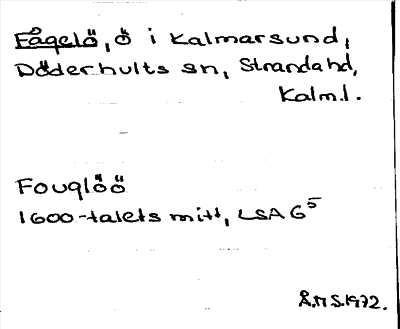 Fågelö, ö i Kalmarsund,
Döderhults sn, Stranda hd,
Kalm.l.
Fouglöö
1600-talets mitt, LSA G⁵
Å.M S.1972.